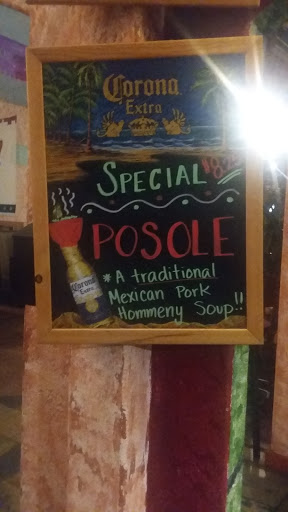 Corona
Extra
SPECIAL
POSOLE
Corona
Extra
*A traditional
Mexican Pork
Hommeny Soup!!